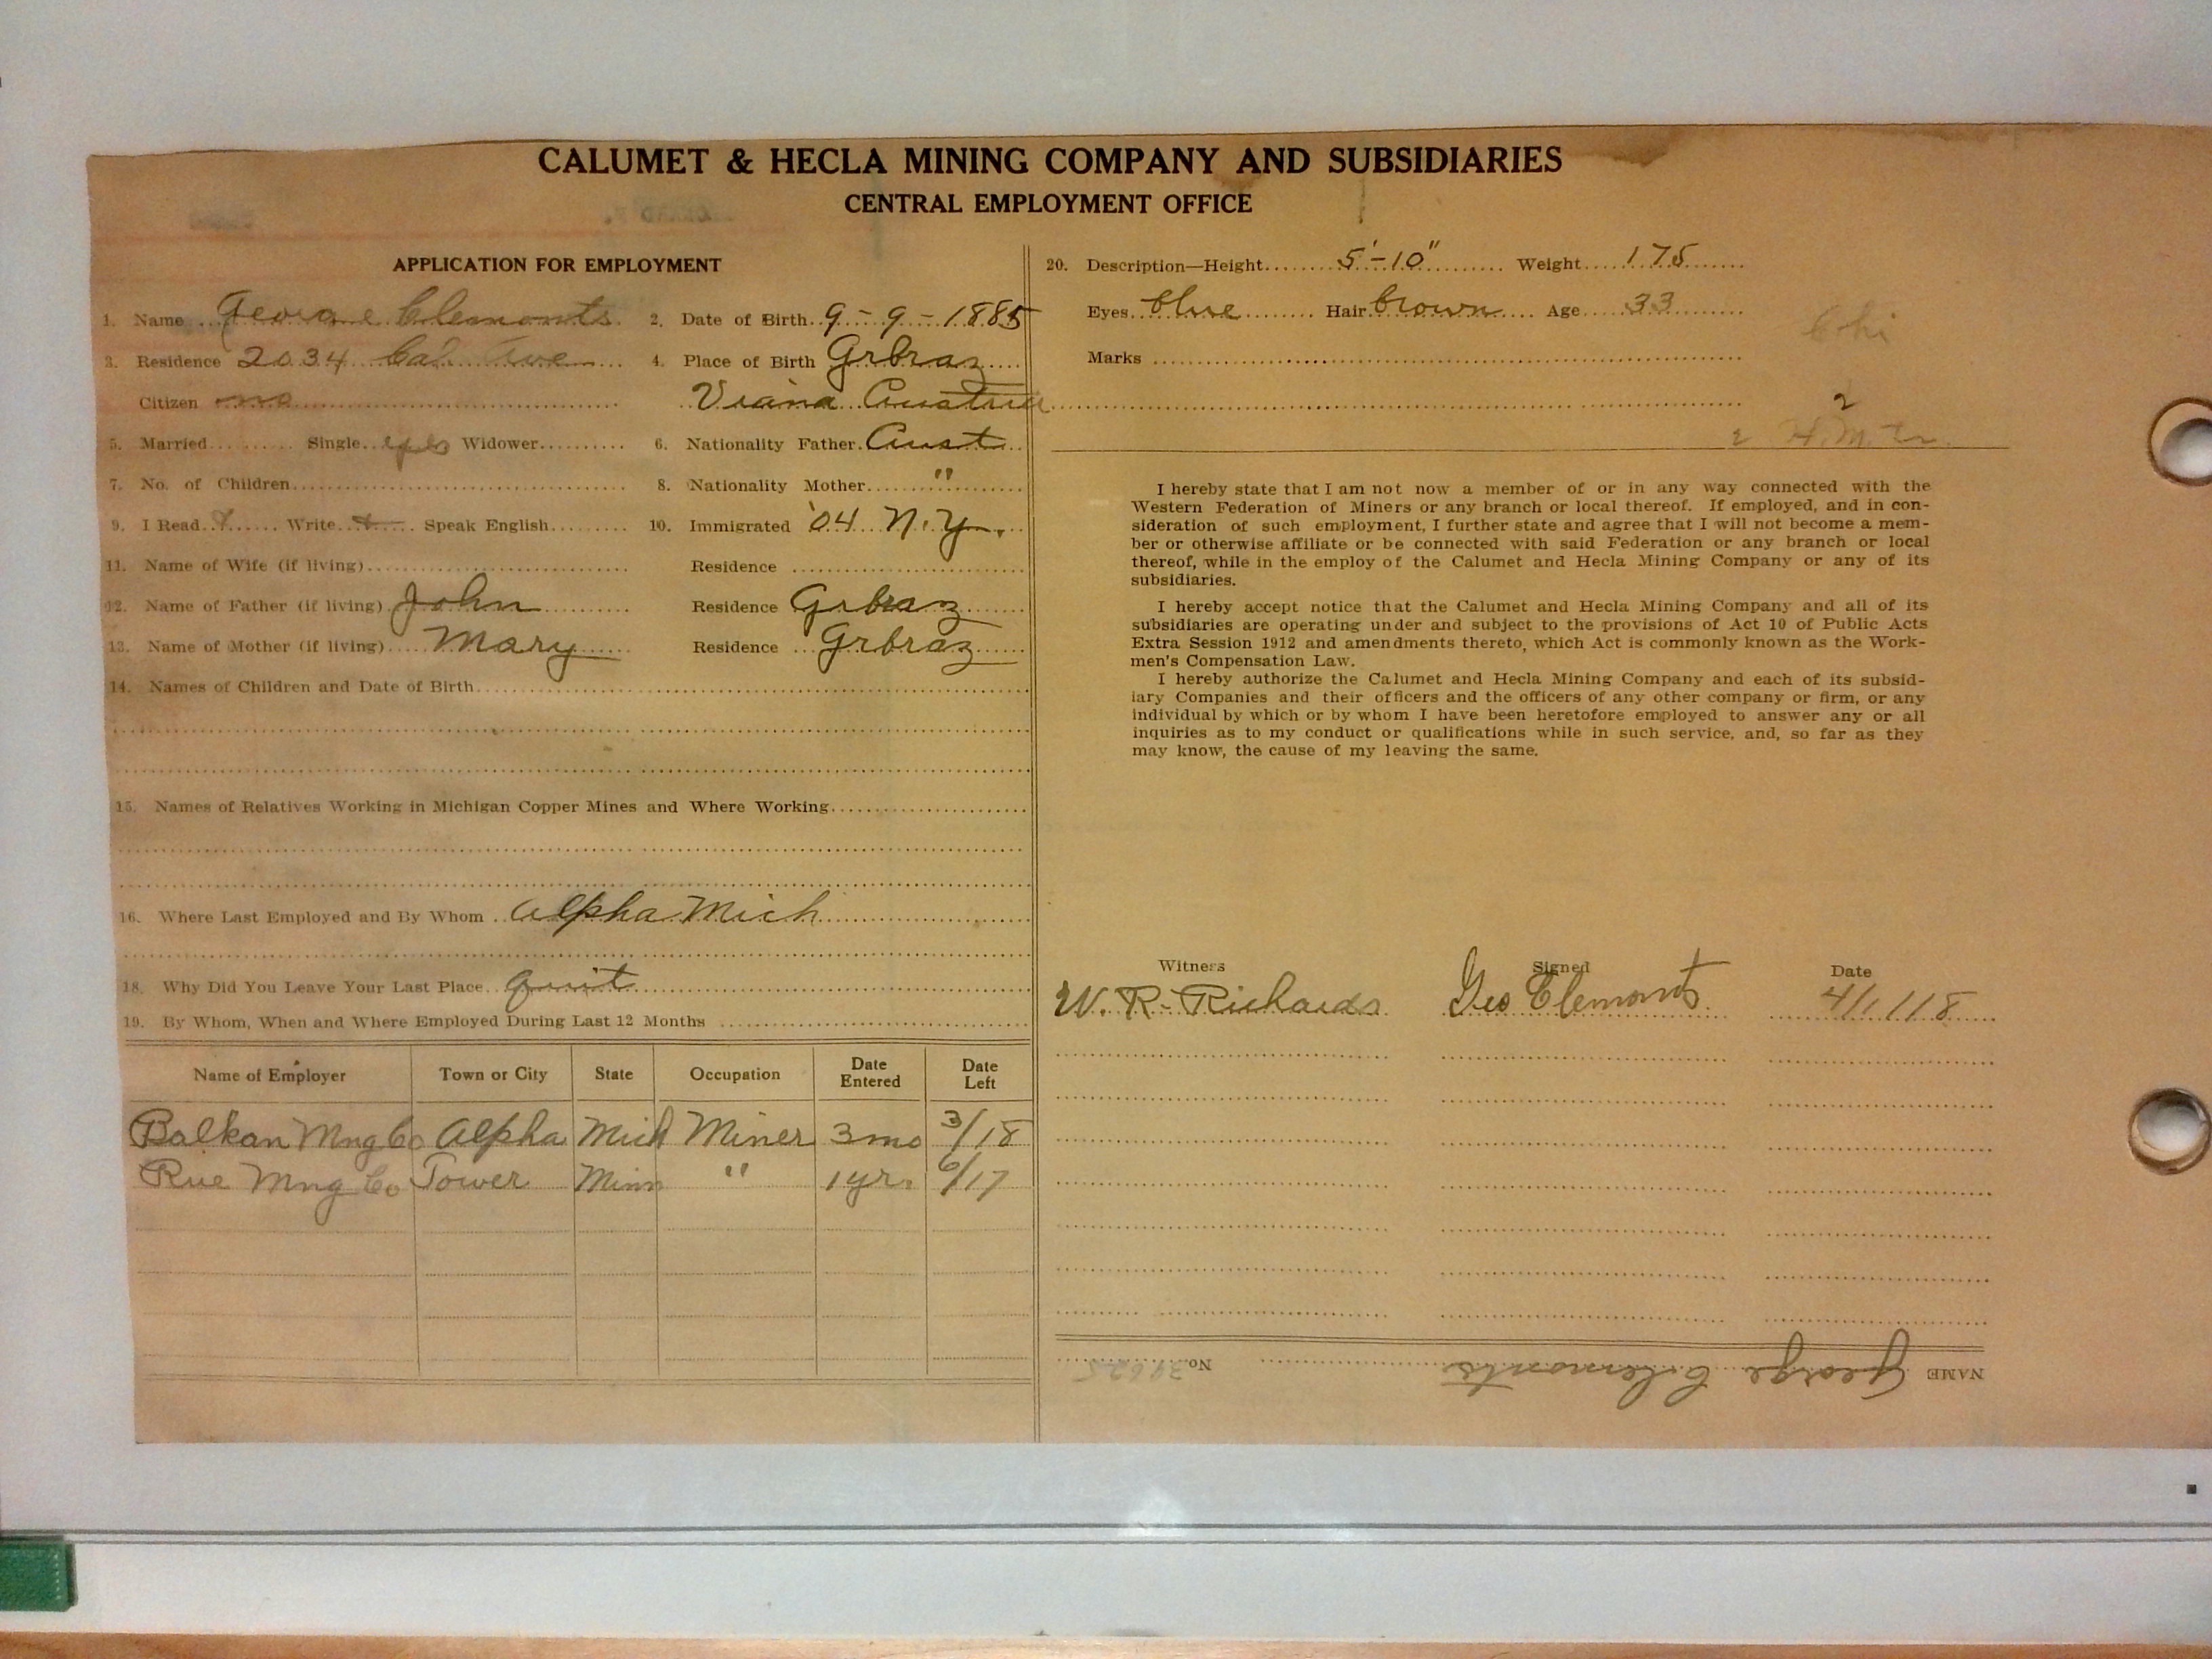 CALUMET & HECLA MINING COMPANY AND SUBSIDIARIES
CENTRAL EMPLOYMENT OFFICE
APPLICATION FOR EMPLOYMENT
1. Name George Clemonts 2. Date of Birth 9-9-1885
3. Residence 2034 Cal. Ave 4. Place of Birth Grbraz
Citizen no Viana Austria
5. Married Single yes Widower 6. Nationality Father Aust
7. No. of Children 8. Nationality Mother "
9. I Read Write Speak English 10. Immigrated '04 N.Y.
11. Name of Wife (if living) Residence
12. Name of Father (if living) John Residence Grbraz
13. Name of Mother (if living) Mary Residence Grbraz
14. Names of Children and Date of Birth
15. Names of Relatives Working in Michigan Copper Mines and Where Working
16. Where Last Employed and By Whom Alpha Mich
18. Why Did You Leave Your Last Place quit
19. By Whom, When and Where Employed During Last 12 Months
Name of Employer Town or City State Occupation Date Entered Date Left
Balkan Mng Co Alpha Mich Miner 3 mo 3/18
Rue Mng Co Tower Minn " 1 yr. 6/17
20. Description—Height 5'-10" Weight 175
Eyes blue Hair brown Age 33
Chi
Marks
2
2 H.M. Tr.
I hereby state that I am not now a member of or in any way connected with the
Western Federation of Miners or any branch or local thereof. If employed, and in con-
sideration of such employment, I further state and agree that I will not become a mem-
ber or otherwise affiliate or be connected with said Federation or any branch or local
thereof, while in the employ of the Calumet and Hecla Mining Company or any of its
subsidiaries.
I hereby accept notice that the Calumet and Hecla Mining Company and all of its
subsidiaries are operating under and subject to the provisions of Act 10 of Public Acts
Extra Session 1912 and amendments thereto, which Act is commonly known as the Work-
men's Compensation Law.
I hereby authorize the Calumet and Hecla Mining Company and each of its subsid-
iary Companies and their officers and the officers of any other company or firm, or any
individual by which or by whom I have been heretofore employed to answer any or all
inquiries as to my conduct or qualifications while in such service, and, so far as they
may know, the cause of my leaving the same.
Witness Signed Date
W. R. Richards Geo Clemonts 4/1/18
NAME George Clemonts No. 39625